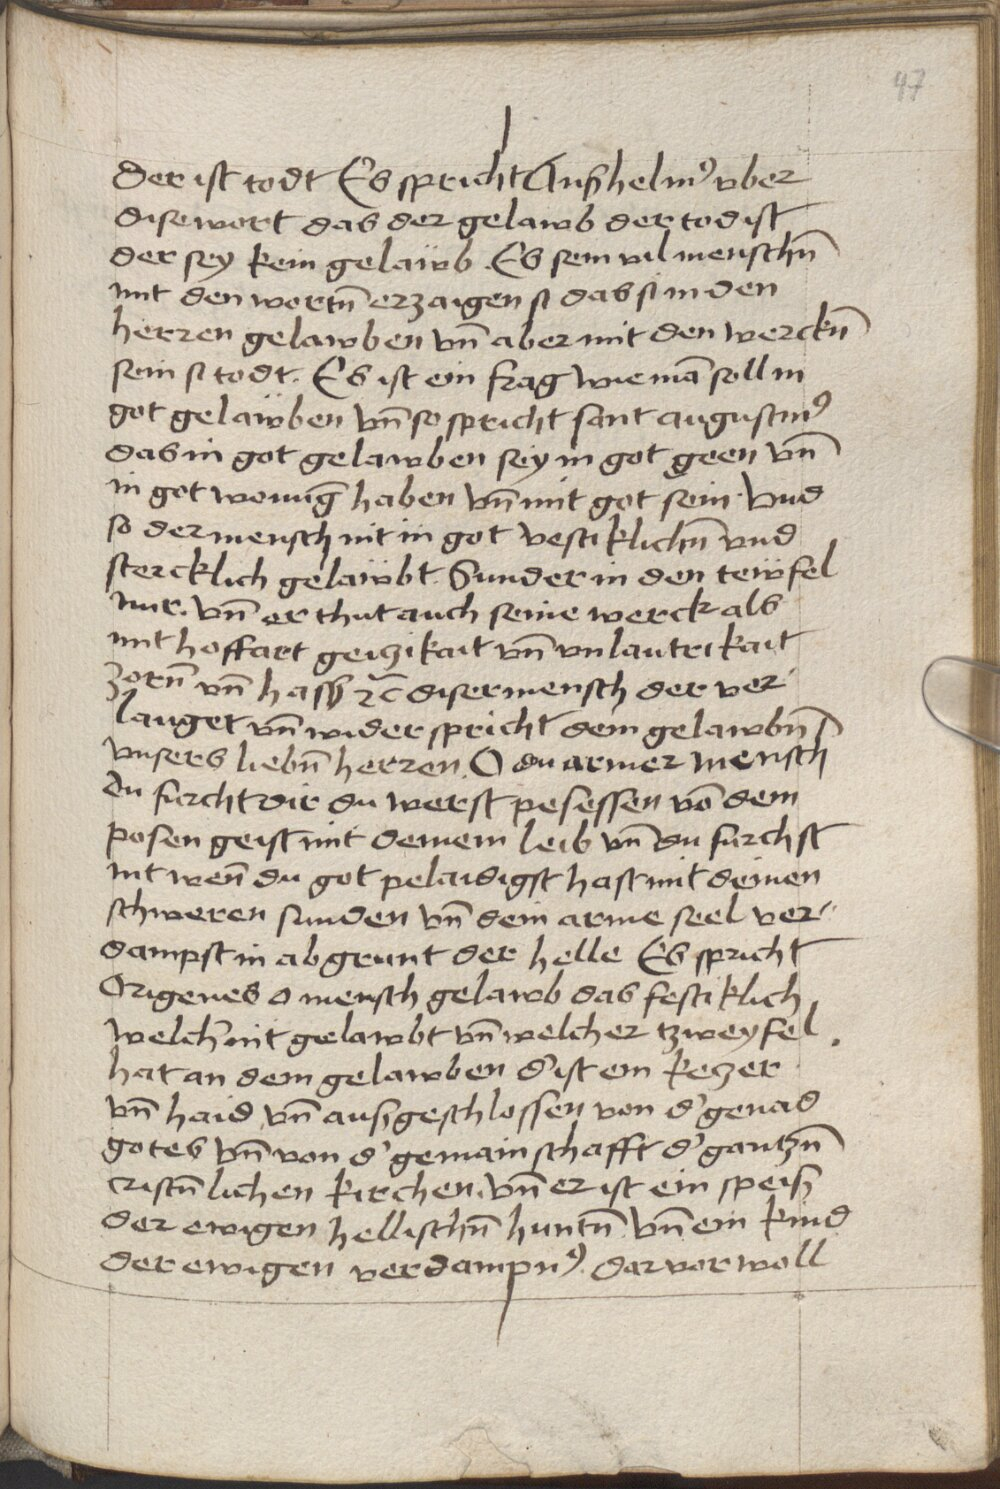 47
Der ist todt Es spricht Anßhelmꝰ vber
dise wort das der gelawb der tod ist
der sey kein gelaẅb. Es sein vil menschn̄
mit den wortn̄ erzaigen si das si in den
herren gelawben vn̄ aber mit den werckn̄
sein si todt. Es ist ein frag wie mā soll in
got gelaẅben vn̄ so spricht sant augustinꝰ
das in got gelawben sey in got geen vn̄
in got wonūg haben vn̄ mit got sein. Vnd
so der mensch nit in got vestiklichn̄ vnd
stercklich gelaẅbt. Sunder in den teẅfel
nur. vn̄ er thut auch seine werck als
mit hoffart geitzikait vn̄ vnlautrikait
zorn̄ vn̄ hasß ꝛc̄ diser mensch der ver
lauget vn̄ wider spricht dem gelawbn̄
vnsers liebn̄ herren. O du armer mensch
du furcht dir du werst pesessen vō dem
posen geist mit deinem leib vn̄ du furchst
nit wen̄ du got pelaidigst hast mit deinen
schweren sunden vn̄ dein arme seel ver
dampst in abgrunt der helle Es spricht
Origenes o mensch gelawb das festiklich
welch̄ nit gelawbt vn̄ welcher tzweyfel
hat an dem gelawben d' ist ein keczer
vn̄ haid vn̄ außgeschlossen von d' genad
gotes vn̄ von d' gemainschafft d' gantzn̄
cristn̄lichen kirchen. vn̄ er ist ein speiß
der ewigen hellischn̄ huntn̄ vn̄ ein kind
der ewigen verdampnꝰ. darvor woll